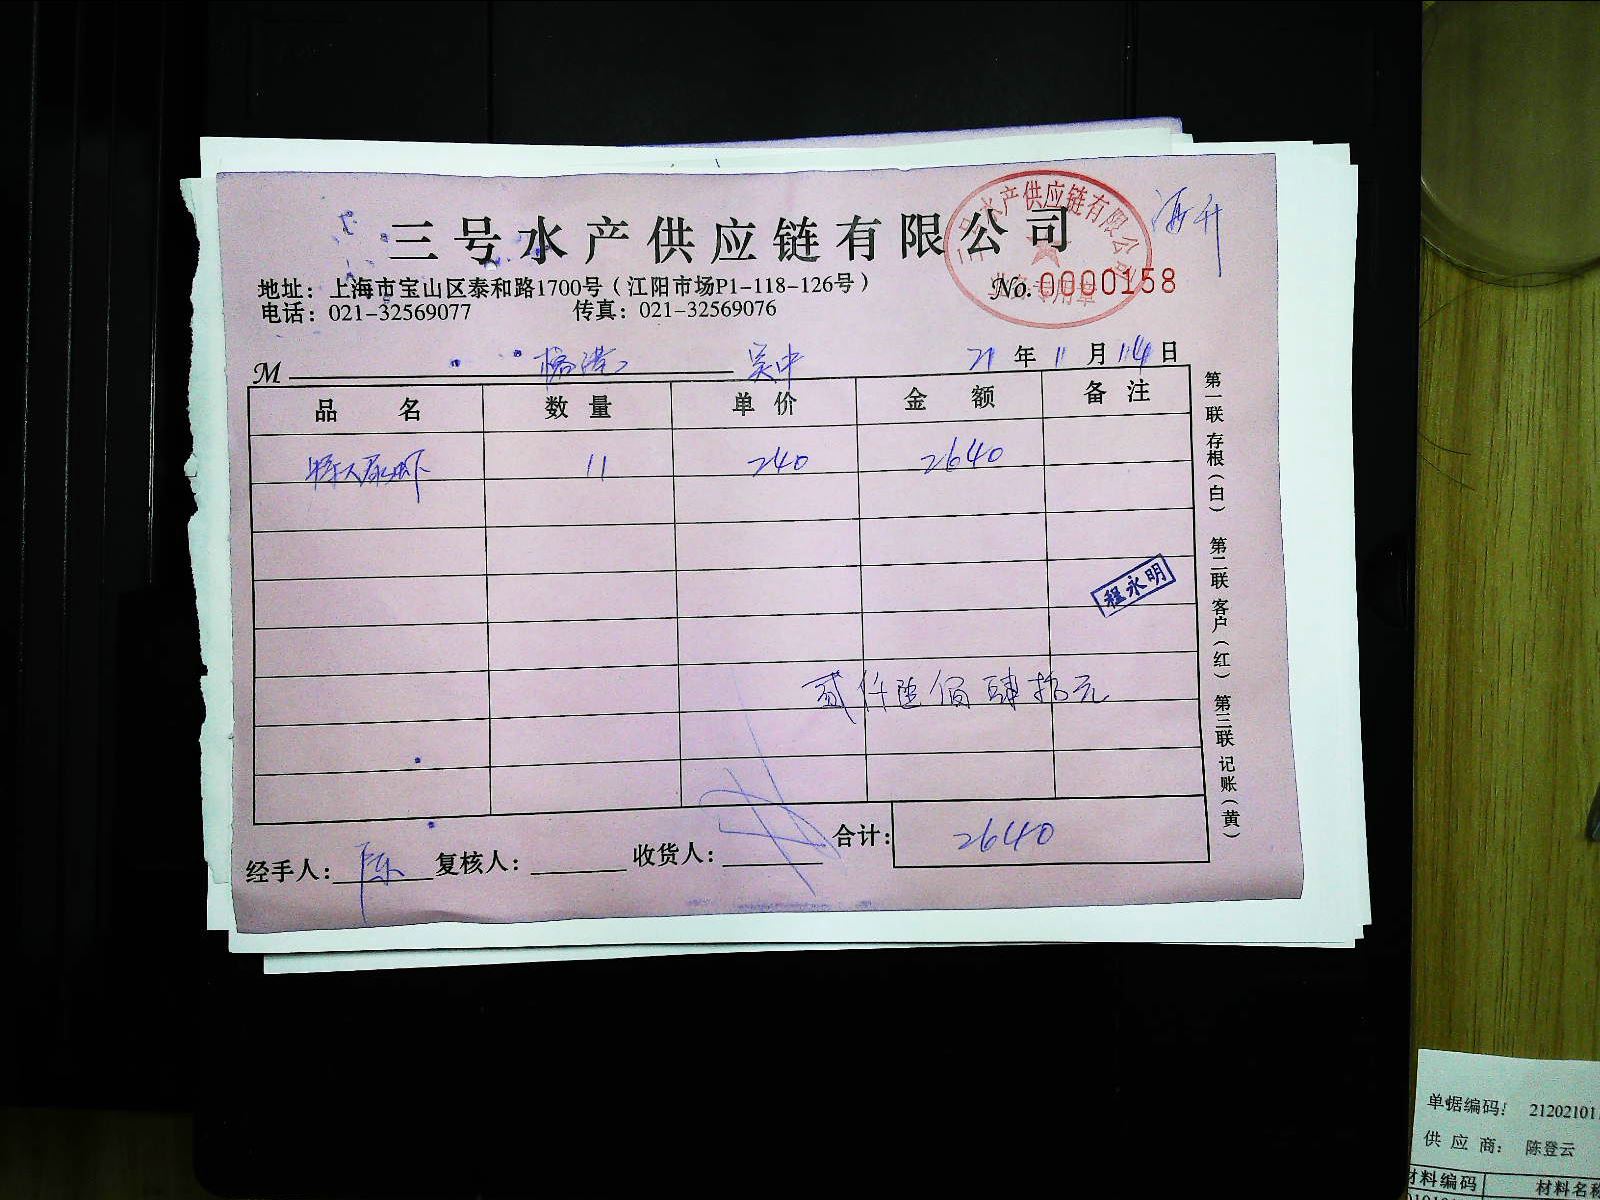 三号水产供应链有限公司
三号水产供应链有限公司
业务专用章
海升
地址：上海市宝山区泰和路1700号（江阳市场P1-118-126号）
No. 0000158
电话：021-32569077 传真：021-32569076
M 吴中 21年11月14日
品名 数量 单价 金额 备注
特大尿虾 11 240 2640
程永明
贰仟陆佰肆拾元
合计：2640
经手人：陈 复核人： 收货人：
第一联 存根（白） 第二联 客户（红） 第三联 记账（黄）
单据编码： 21202101
供应商： 陈登云
材料编码 材料名称